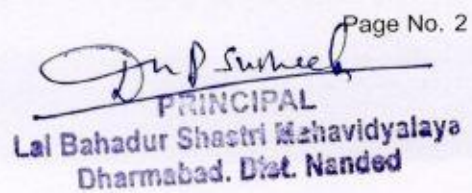 Page No. 2
PRINCIPAL
Lal Bahadur Shastri Mahavidyalaya
Dharmabad. Dist. Nanded